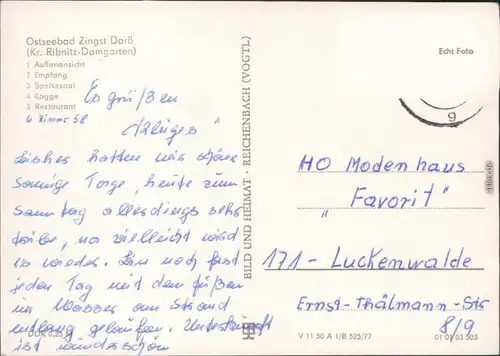 Ostseebad Zingst Darß
(Kr. Ribnitz-Damgarten)
1 Außenansicht
2 Empfang
3 Speisesaal
4 Kogge
5 Restaurant
6 Zimmer 58
Es grüßen
Klüges
Bisher hatten wir schöne
sonnige Tage, heute zum
Sonntag allerdings sehr
trübe, na vielleicht wird
es wieder. Bin noch fast
jeden Tag mit den Füßen
im Wasser am Strand
entlang gelaufen. Unterkunft
ist wunderschön
BILD UND HEIMAT · REICHENBACH (VOGTL)
Echt Foto
g
HO Modenhaus
"Favorit"
171 - Luckenwalde
Ernst-Thälmann-Str
8/9
V 11 50 A 1/B 525/77
01 01 03 503